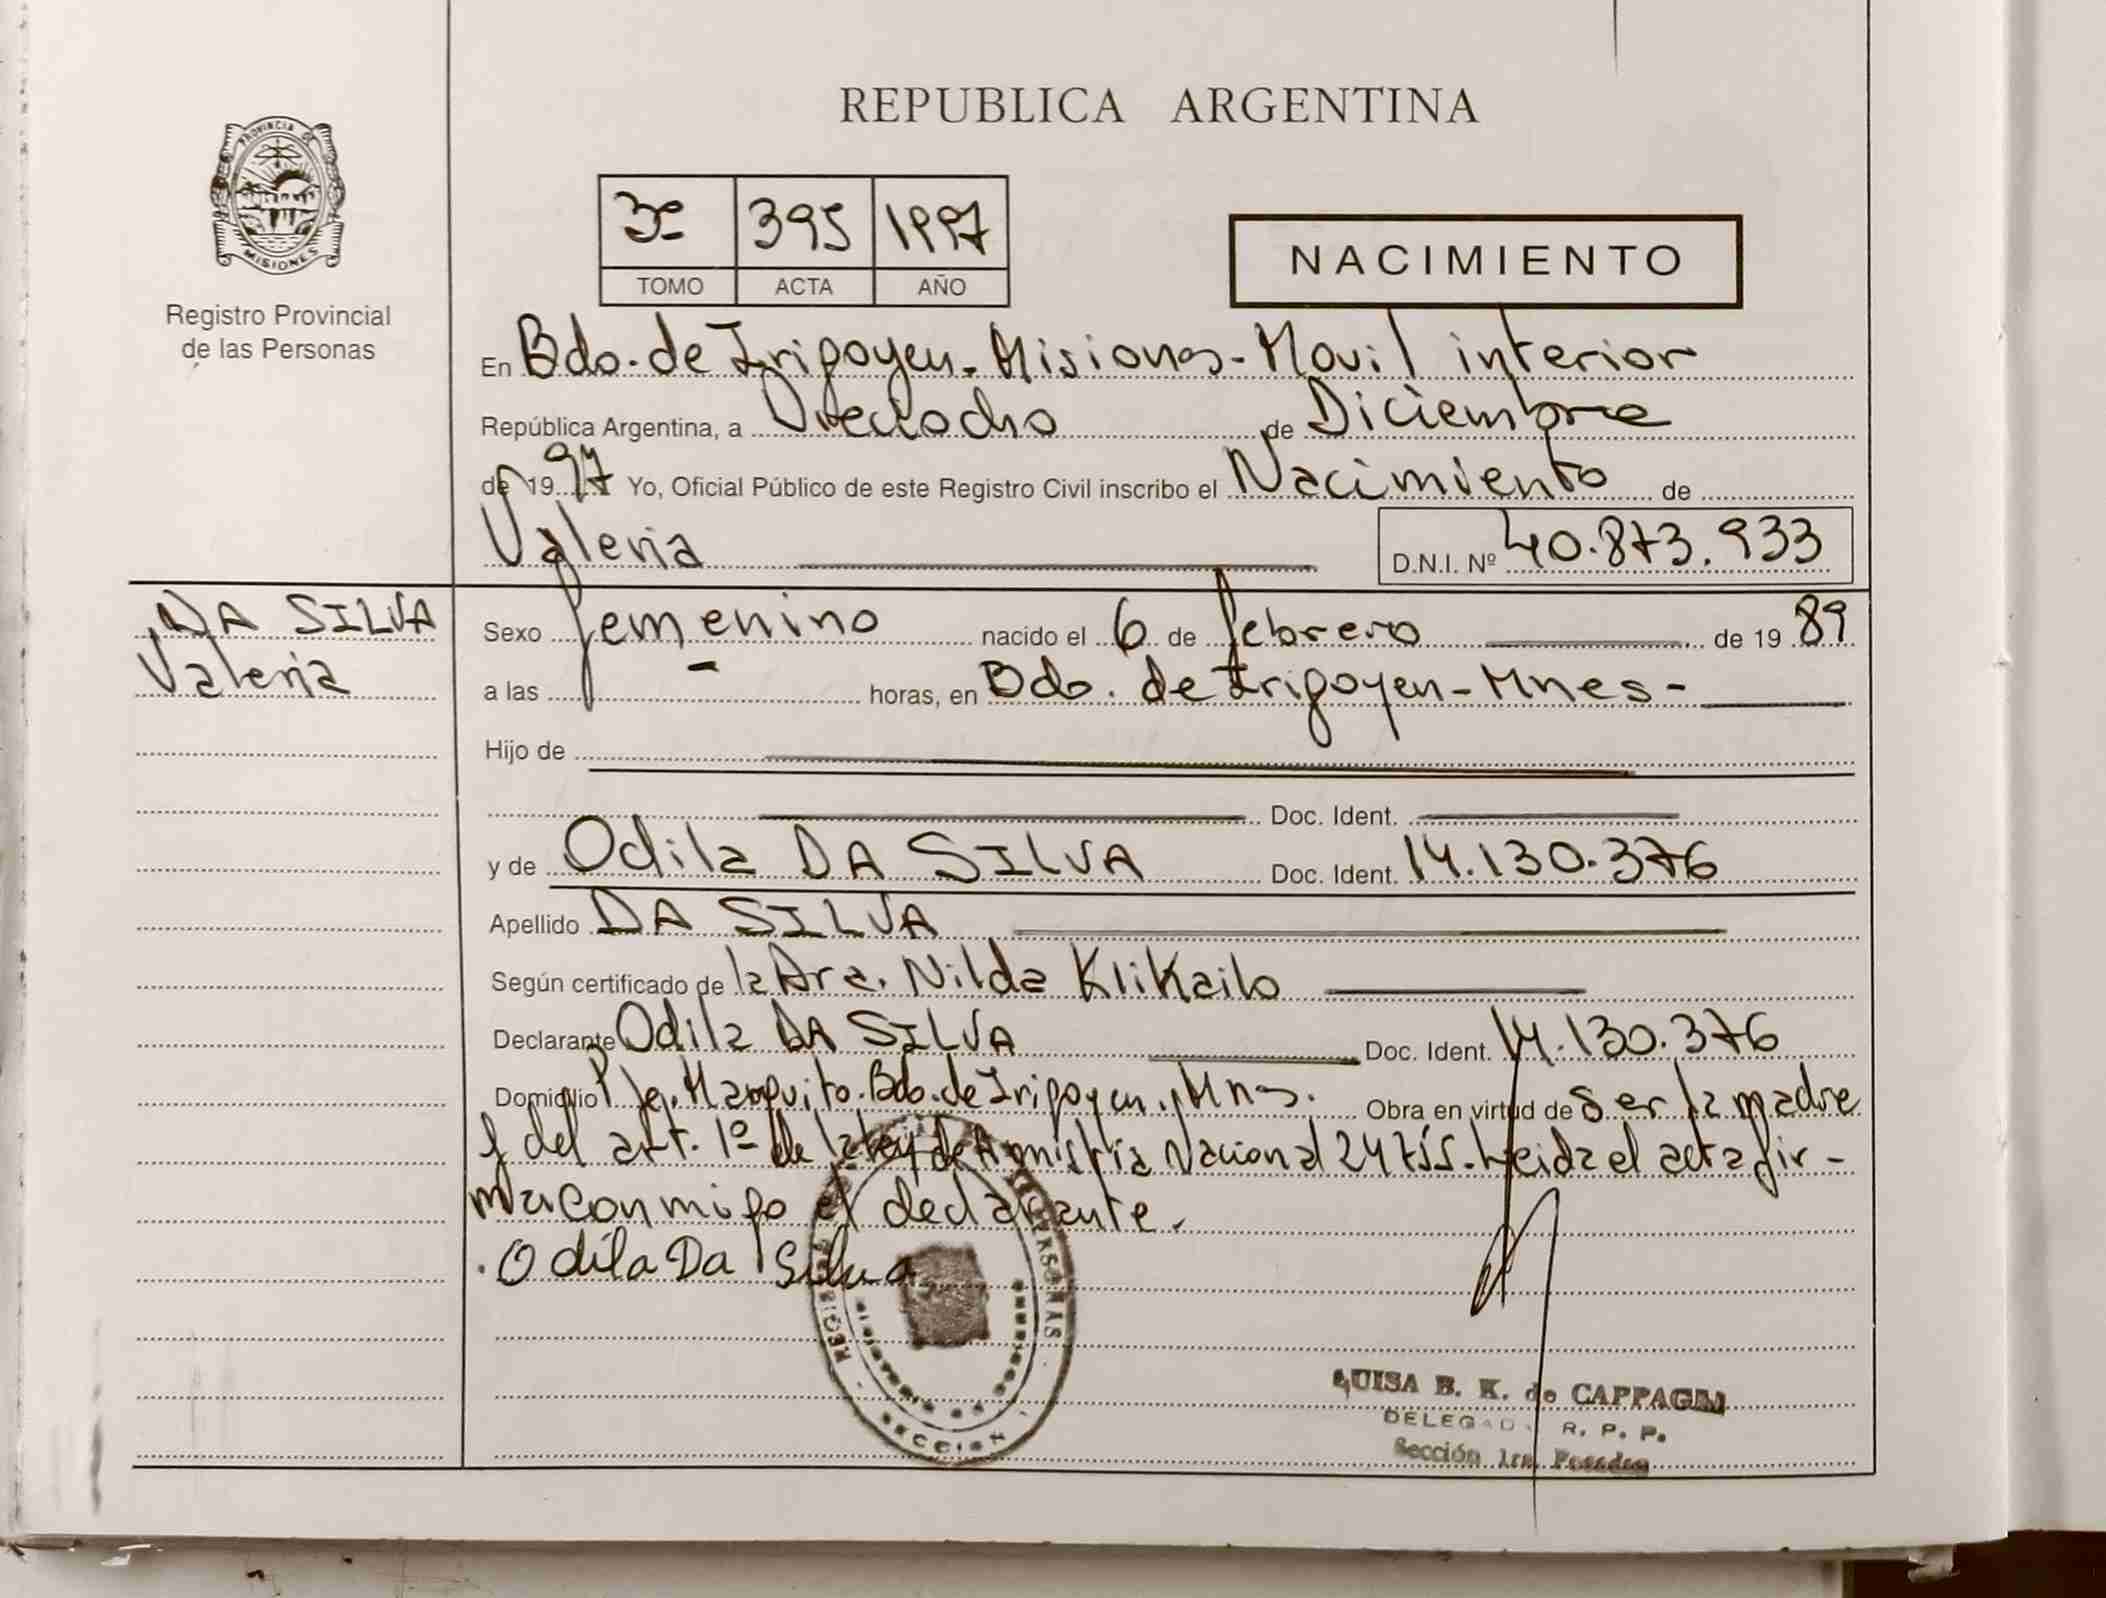 REPUBLICA ARGENTINA
PROVINCIA DE
MISIONES
Registro Provincial
de las Personas
3º 395 1997
TOMO ACTA AÑO
NACIMIENTO
En Bdo. de Irigoyen - Misiones - Movil interior
República Argentina, a Dieciocho de Diciembre
de 1997 Yo, Oficial Público de este Registro Civil inscribo el Nacimiento de
Valeria D.N.I. Nº 40.873.933
DA SILVA
Valeria
Sexo femenino nacido el 6 de febrero de 1989
a las - horas, en Bdo. de Irigoyen - Mnes -
Hijo de
Doc. Ident.
y de Odila DA SILVA Doc. Ident. 14.130.376
Apellido DA SILVA
Según certificado de la Dra. Nilda Klikailo
Declarante Odila DA SILVA Doc. Ident. 14.130.376
Domicilio Pje. Marquito. Bdo. de Irigoyen. Mns. Obra en virtud de Ser la madre
y del art. 1º de la ley de Amnistía Nacional 24755. Leida el acta fir-
ma conmigo el declarante.
Odila Da Silva
SECCION
LUISA B. K. de CAPPAGLI
DELEGADA R. P. P.
Sección 1ra. Posadas